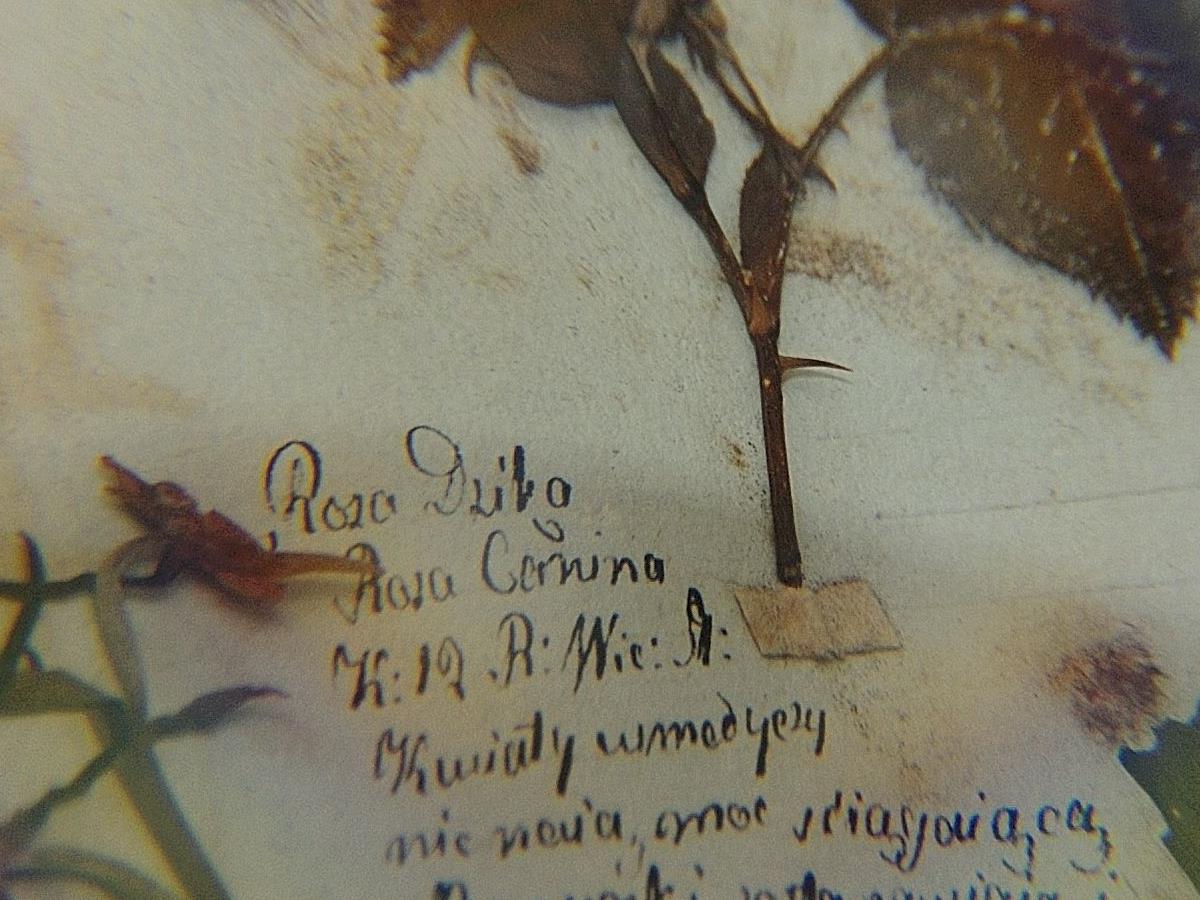 Roza Dzika
Rosa Cannina
K: 12 R: Wie: A:
Kwiaty w medycy
nie maja, moc sciągająca,